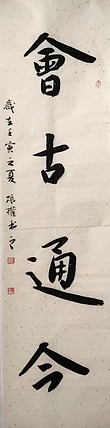 會古通今
歲在壬寅之夏 張權書